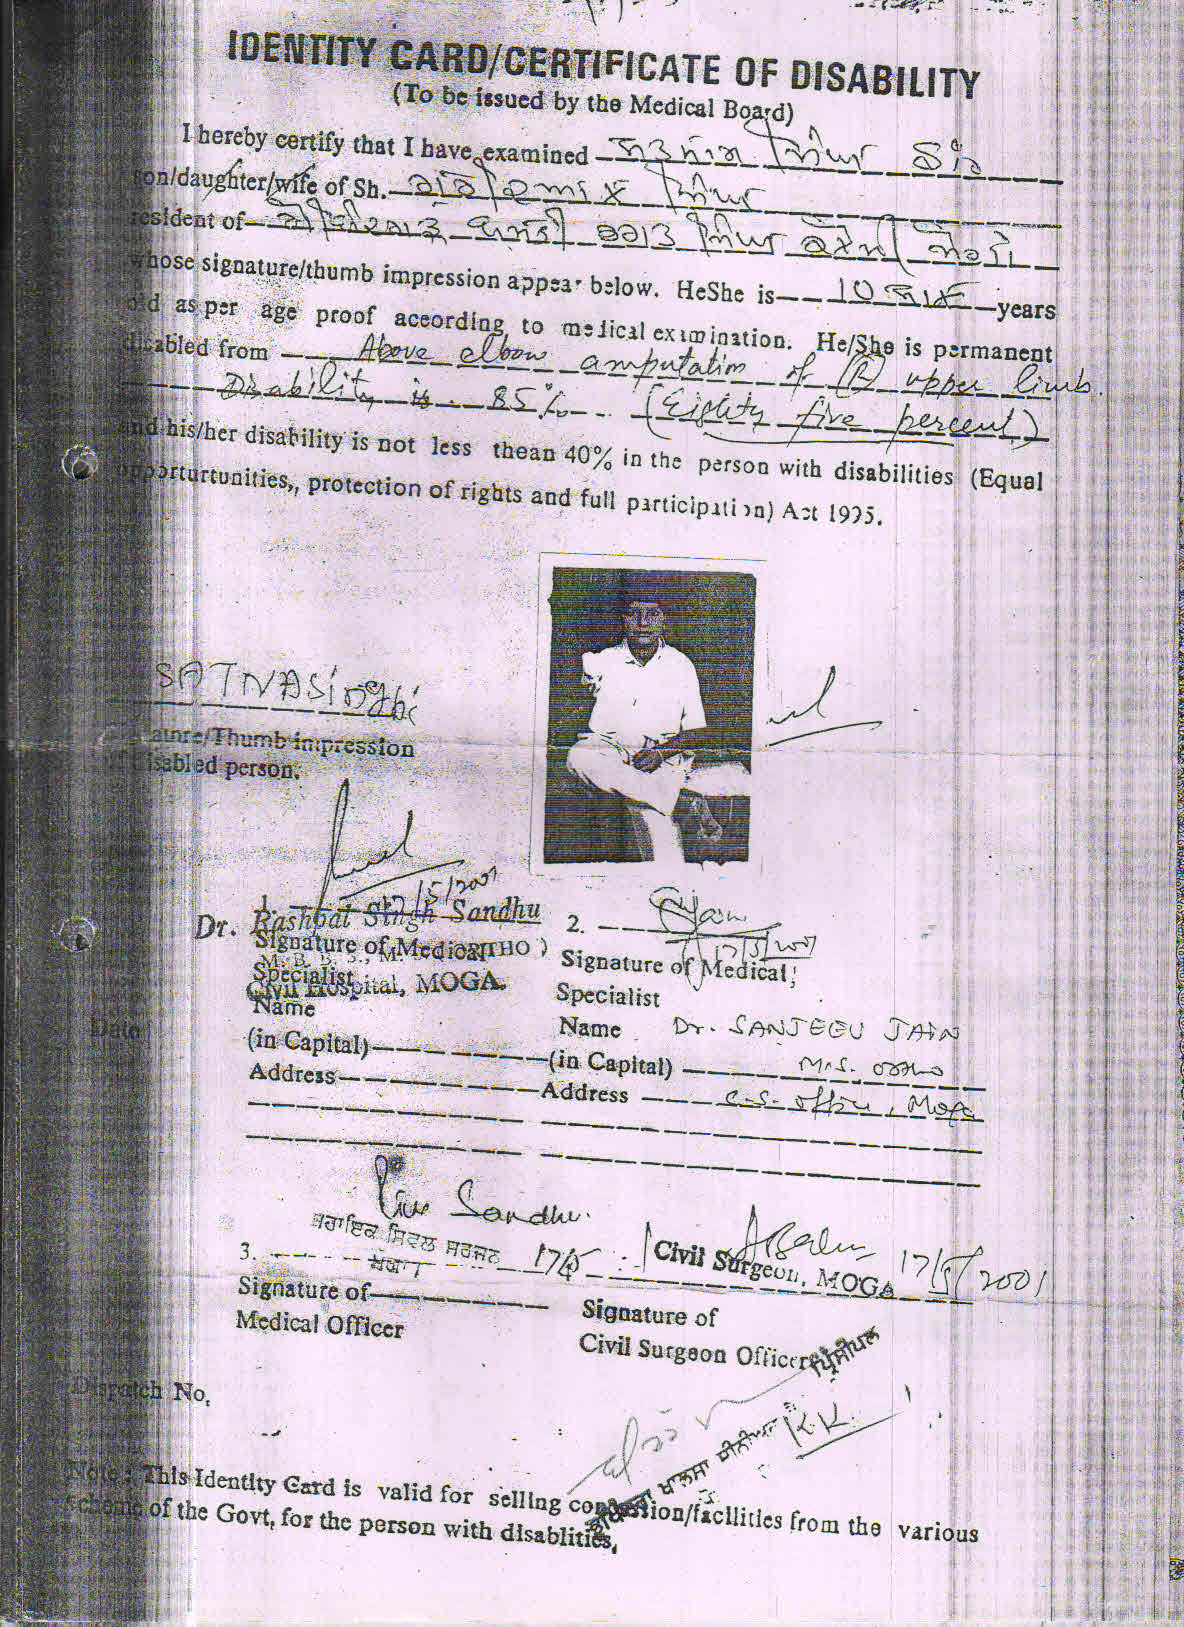 IDENTITY CARD/CERTIFICATE OF DISABILITY
(To be issued by the Medical Board)
I hereby certify that I have examined ਸਤਨਾਮ ਸਿੰਘ
son/daughter/wife of Sh. ਸਿੰਘ
resident of
whose signature/thumb impression appear below. HeShe is 10 years
old as per age proof aceording to medical examination. He/She is permanent
disabled from Above elbow amputation of (R) upper limb.
Disability is 85% (Eighty five percent)
and his/her disability is not less thean 40% in the person with disabilities (Equal
opporturtunities,, protection of rights and full participation) Act 1995.
SATNASingh
Signature/Thumb impression
of disabled person.
1. 17/5/2001
Dr. Rashpal Singh Sandhu
Signature of Medical
M. B. B. S., M. (ORTHO)
Specialist
Civil Hospital, MOGA.
Name
Date
(in Capital)
Address
2.
17/5/2001
Signature of Medical
Specialist
Name Dr. SANJEEV JAIN
(in Capital) M.S. ortho
Address C.S. office, Moga
Sandhu
ਸਹਾਇਕ ਸਿਵਲ ਸਰਜਨ
3. ਮੋਗਾ 17/5
Signature of
Medical Officer
Civil Surgeon, MOGA 17/5/2001
Signature of
Civil Surgeon Officer
ਪ੍ਰਿੰਸੀਪਲ
Dispatch No.
K.K.
ਖਾਲਸਾ ਸੀਨੀਅਰ
Note : This Identity Card is valid for selling concession/facilities from the various
scheme of the Govt. for the person with disablities.